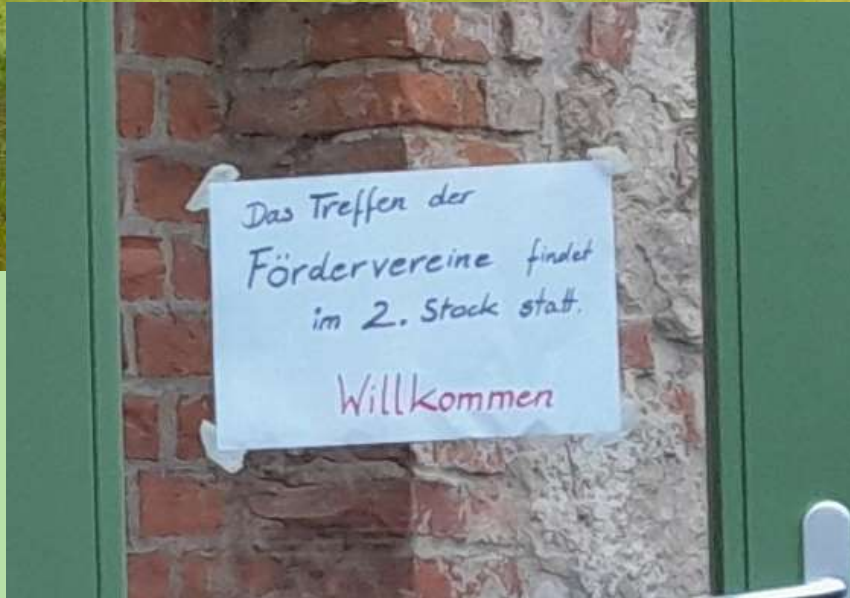 Das Treffen der
Fördervereine findet
im 2. Stock statt.
Willkommen